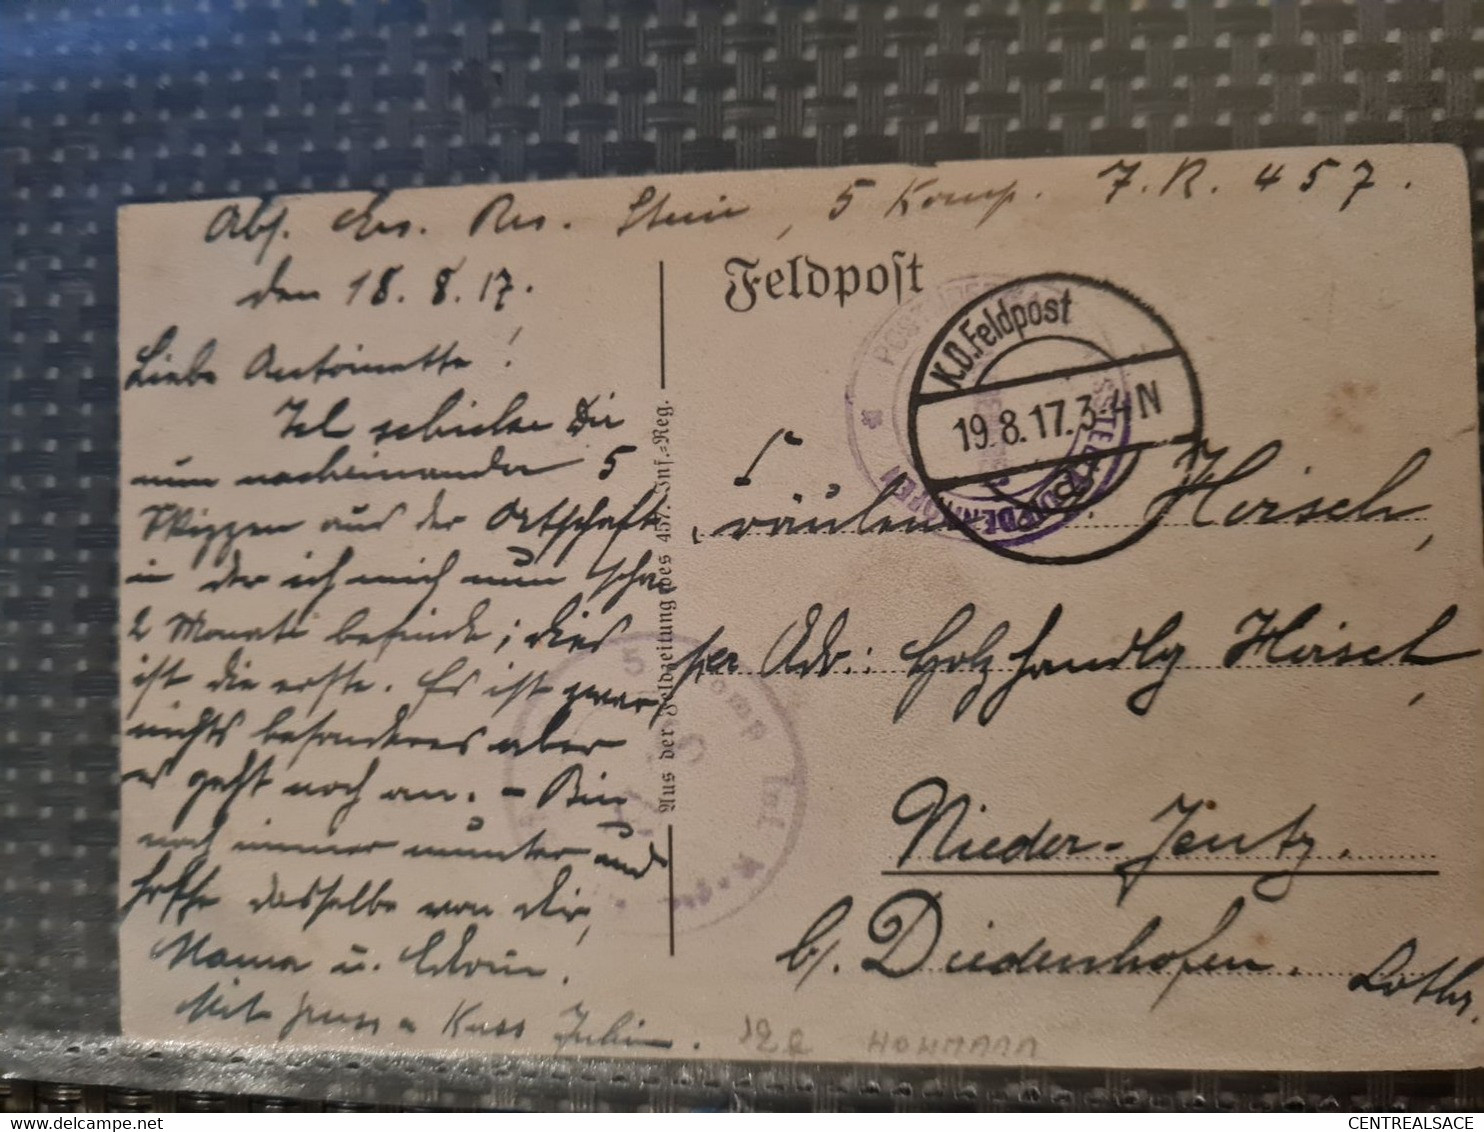 Abs. Ers. Res. Stein, 5 Komp. J. R. 457.
den 18. 8. 17.
Liebe Antoinette!
Ich schicke Dir
nun nacheinander 5
Skizzen aus der Ortschaft
in der ich mich nun schon
2 Monate befinde; dies
ist die erste. Es ist zwar
nichts besonderes aber
es geht noch an. – Bin
noch immer munter und
hoffe dasselbe von dir,
Mama u. Edwin.
Mit Gruss u Kuss
Feldpost
K.D.Feldpost
19.8.17.3-4N
Aus der Feldzeitung des 457. Inf.-Reg.
5 Komp
Fräulein Hirsch,
per Adr: Holzhandlg Hirsch,
Nieder-Jeutz.
b/. Diedenhofen. Lothr.
HOHMANN
CENTREALSACE